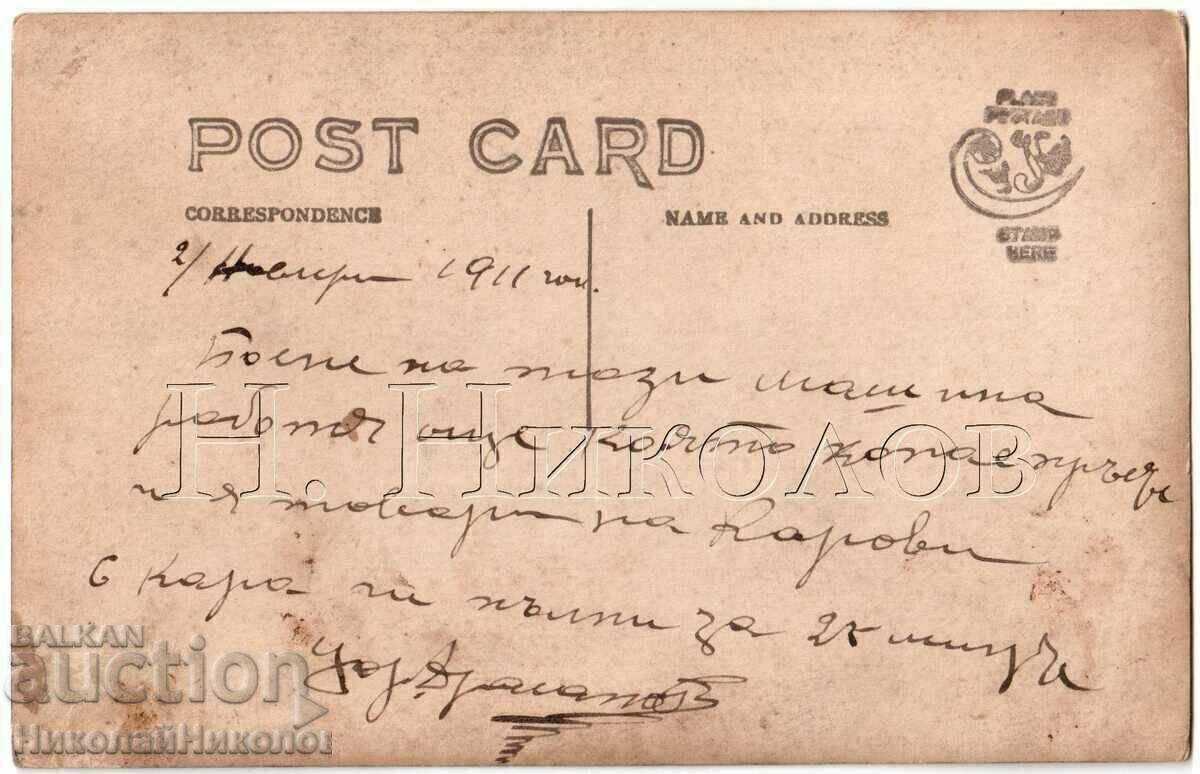 POST CARD
PLACE
POSTAGE
STAMP
HERE
CORRESPONDENCE
NAME AND ADDRESS
2/ Ноемврий 1911 год.
на тази машина
работя още която копае пръстъ
и я товари на карови
6 кара ги пълни за 25 минути
Н. Николов
BALKAN
auction
НиколайНиколов